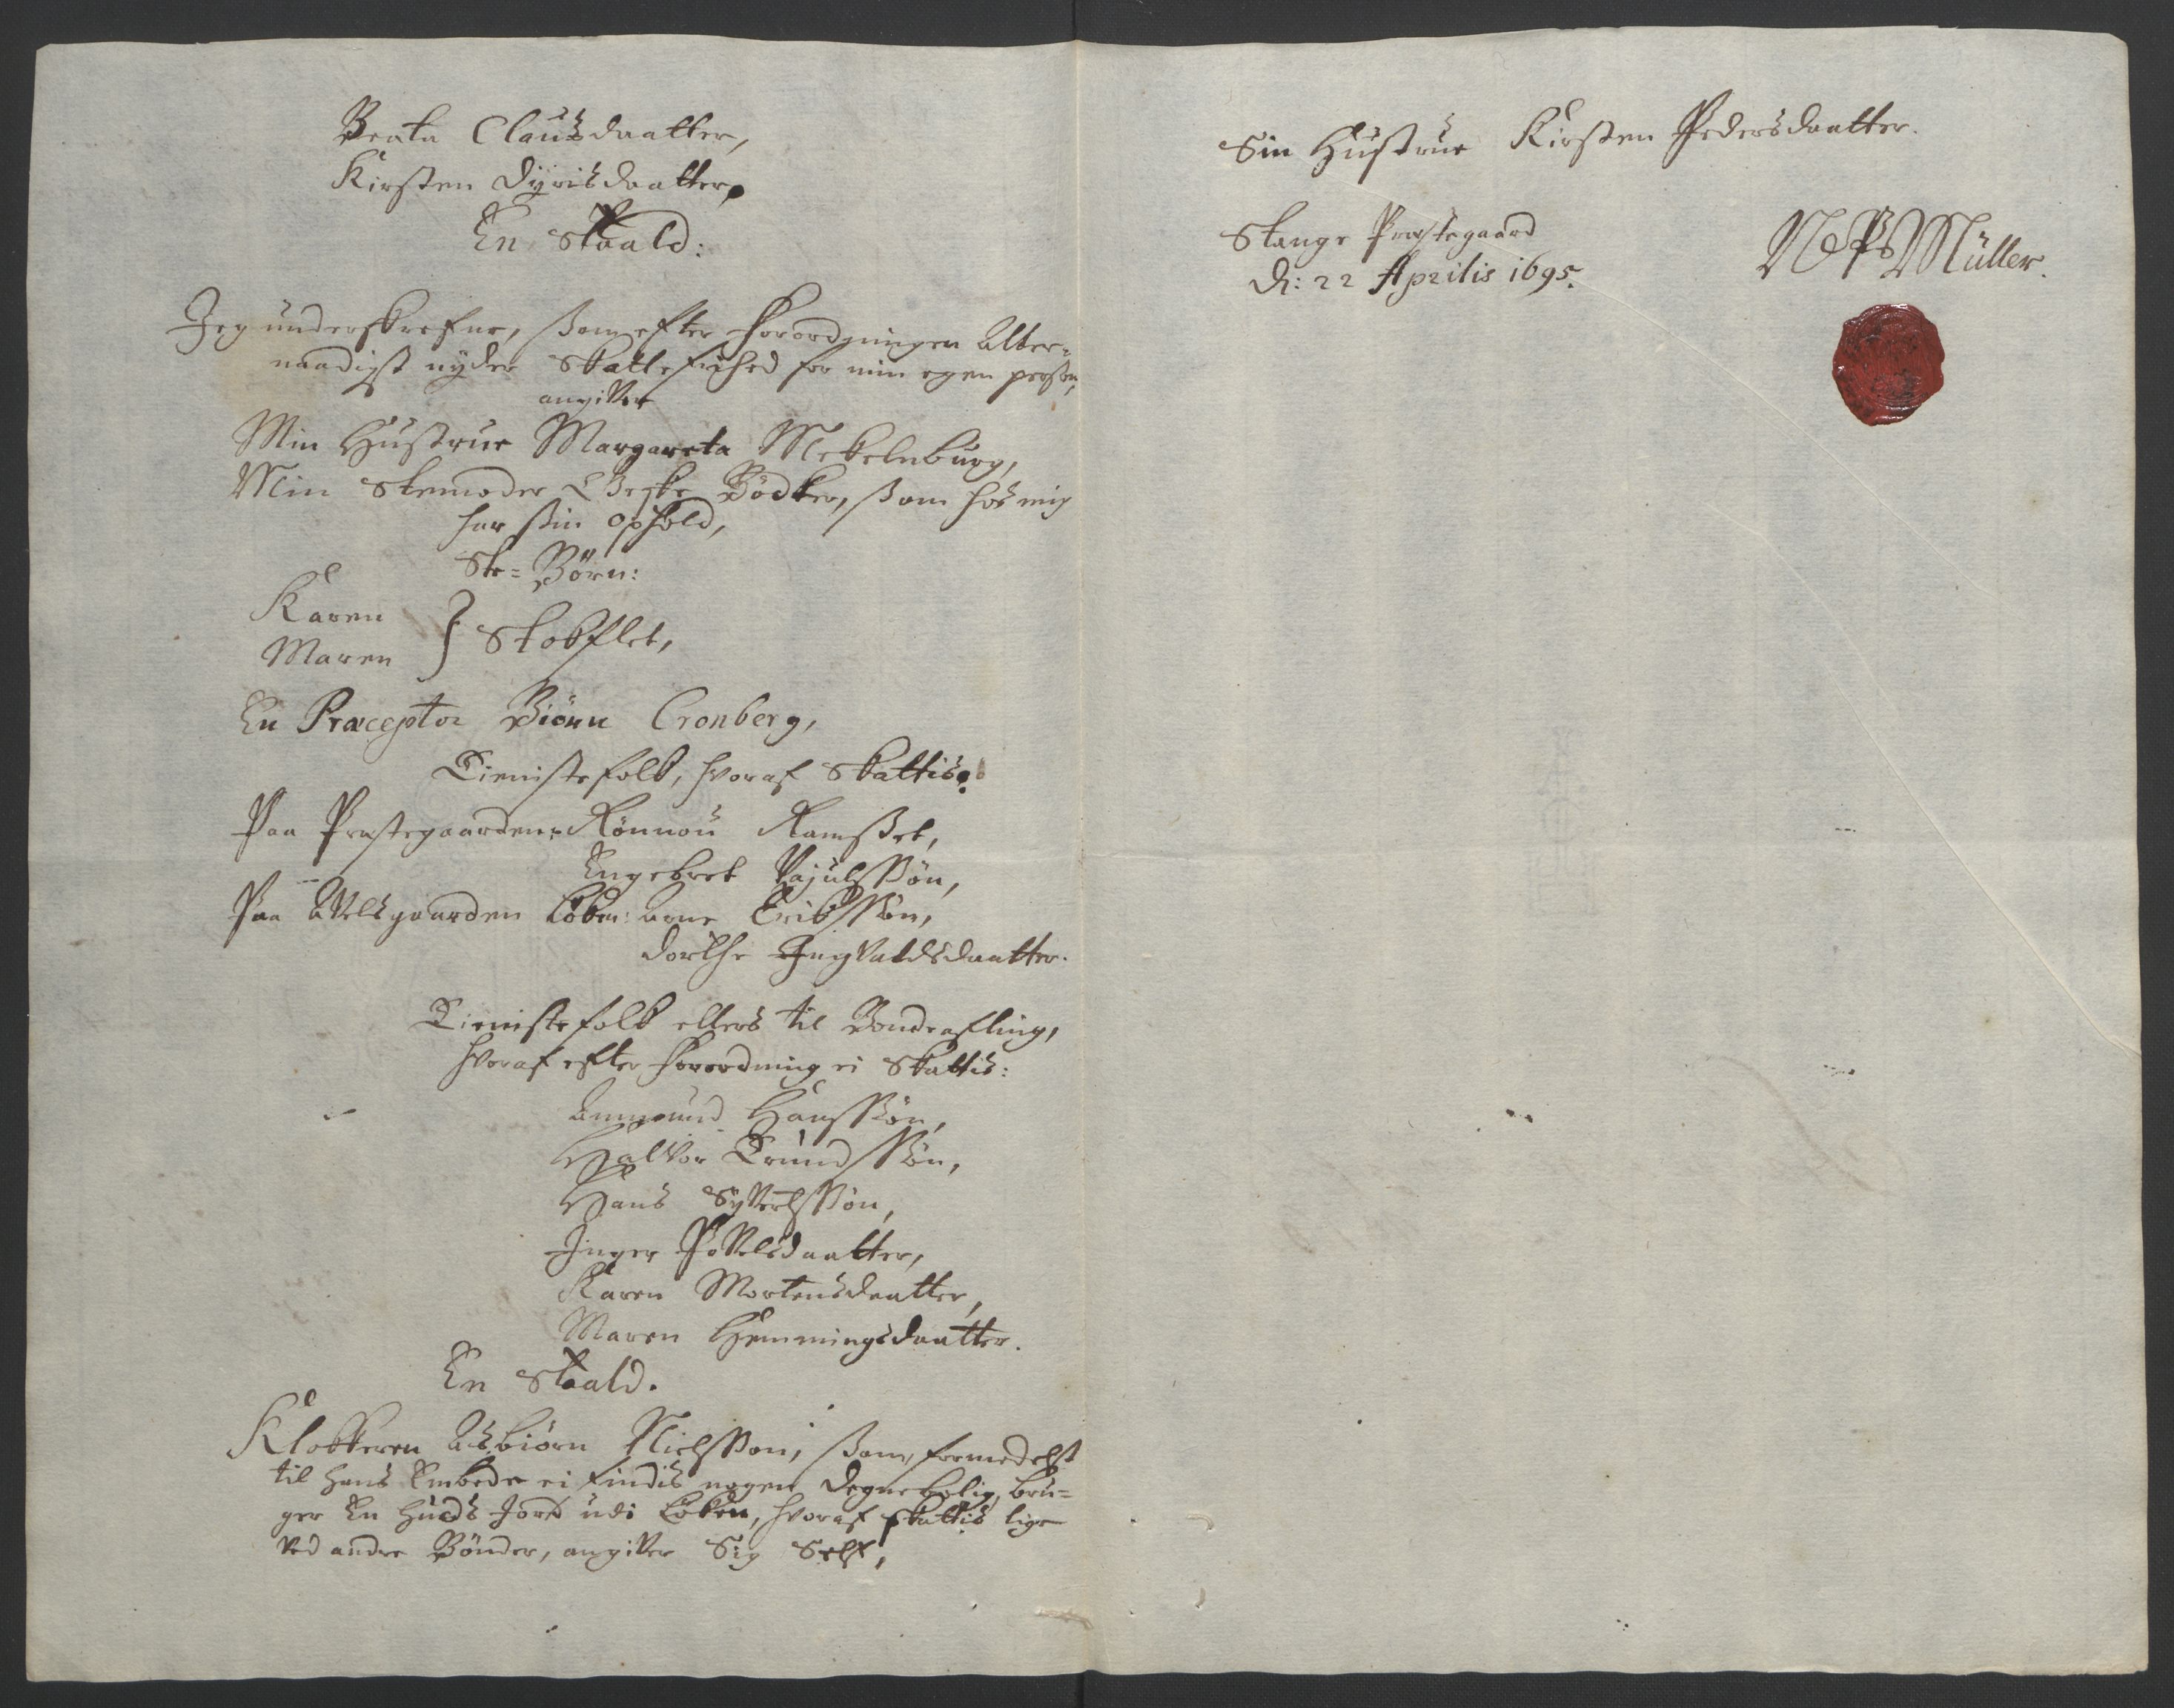 Beata Clausdaatter,
Kirsten Dyrisdaatter,
En Skaald:
Jeg underskrefne, som efter Forordningen Aller-
naadigst nyder Skattefrihed for min egen person,
angiver
Min Hustrue Margareta Mekelnburg,
Min Stemoder Geske Bödker, som hos mig
har sin ophold,
Ste-Börn:
Karen
Maren } Stokflet,
En Præceptor Biörn Cronberg,
Tienistefolk, hvoraf Skattis:
Paa Præstegaarden: Rönnou Ramset,
Engebret Pajulssön,
Paa Avlsgaarden Löken: Arne Erikssön,
Dorthe Ingvaldsdaatter.
Tienistefolk ellers til Bondeafling,
hvoraf efter Forordning ei Skattis:
Ammund Hanssön,
Halvor Trundssön,
Hans Syverssön,
Inger Povelsdaatter,
Karen Mortensdaatter,
Maren Hemmingsdaatter.
En Skaald.
Klokkeren Asbiörn Nielssön, som, formedelst
til hans Embede ei findis nogen Degnebolig, bru-
ger En Huuds Jord udi Löken, hvoraf skattis lige
ved andre Bönder, angiver Sig Self,
Sin Hustrue Kirsten Pedersdaatter.
Stange Præstegaard
d: 22 Aprilis 1695.
Müller.